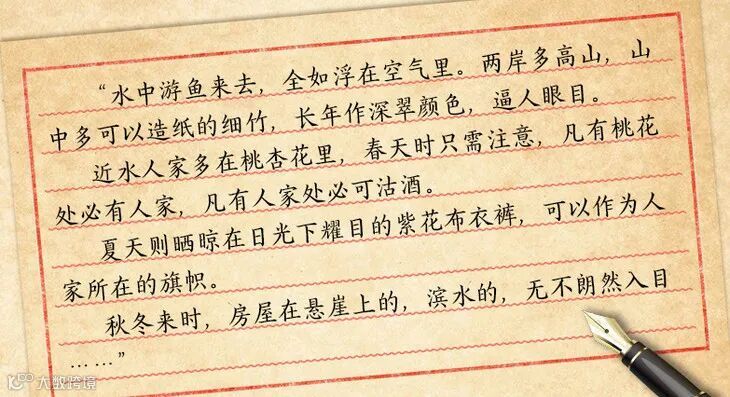 “水中游鱼来去，全如浮在空气里。两岸多高山，山
中多可以造纸的细竹，长年作深翠颜色，逼人眼目。
近水人家多在桃杏花里，春天时只需注意，凡有桃花
处必有人家，凡有人家处必可沽酒。
夏天则晒晾在日光下耀目的紫花布衣裤，可以作为人
家所在的旗帜。
秋冬来时，房屋在悬崖上的，滨水的，无不朗然入目
……”
大数跨境